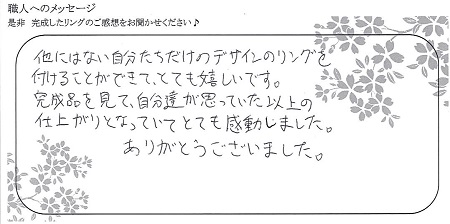 職人へのメッセージ
是非 完成したリングのご感想をお聞かせください♪
他にはない自分たちだけのデザインのリングを
付けることができて、とても嬉しいです。
完成品を見て、自分達が思っていた以上の
仕上がりとなっていてとても感動しました。
ありがとうございました。